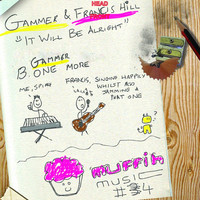 HEAD
GAMMER & FRANCIS HILL
"IT WILL BE ALRIGHT"
GAMMER
B. ONE MORE
ME, SPIKE
FRANCIS, SINGING HAPPILY
WHILST ALSO
JAMMING A
PART ONE
MUFFIN
MUSIC
#34